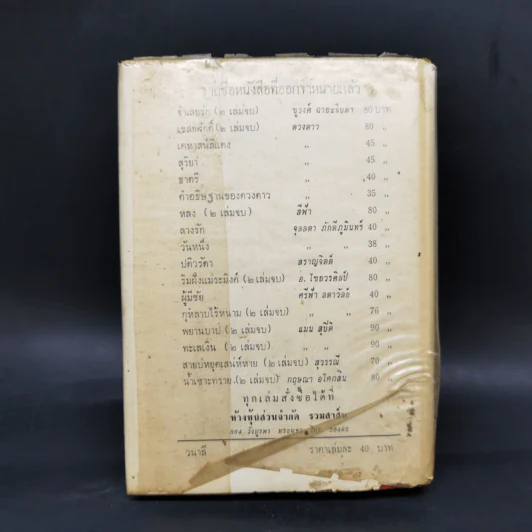 รายชื่อหนังสือที่ออกจำหน่ายแล้ว
(๒ เล่มจบ) ชูวงศ์ ฉายะจินดา 80 บาท
(๒ เล่มจบ) ดวงดาว 80 „
เคหาสน์สีแดง „ 45 „
สุริยา „ 45 „
ชาตรี „ 40 „
คำอธิษฐานของดวงดาว „ 35 „
หลง (๒ เล่มจบ) สีฟ้า 80 „
ลางรัก จุลลดา ภักดีภูมินทร์ 40 „
วันหนึ่ง „ „ 38 „
ปดิวรัดา สราญจิตต์ 40 „
ริมฝั่งแม่ระมิงค์ (๒ เล่มจบ) อ. ไชยวรศิลป์ 80 „
ผู้มีชัย ศรีฟ้า ลดาวัลย์ 40 „
กุหลาบไร้หนาม (๒ เล่มจบ) „ 76 „
พยานบาป (๒ เล่มจบ) แมน สุปิติ 90 „
ทะเลเงิน (๒ เล่มจบ) „ „ 90 „
สายบหยุดเสน่ห์หาย (๒ เล่มจบ) สุวรรณี 70 „
น้ำเซาะทราย (๒ เล่มจบ) กฤษณา อโศกสิน 80 „
ทุกเล่มสั่งซื้อได้ที่
ห้างหุ้นส่วนจำกัด รวมสาส์น
วังบูรพา พระนคร
วนาลี ราคาเล่มละ 40 บาท